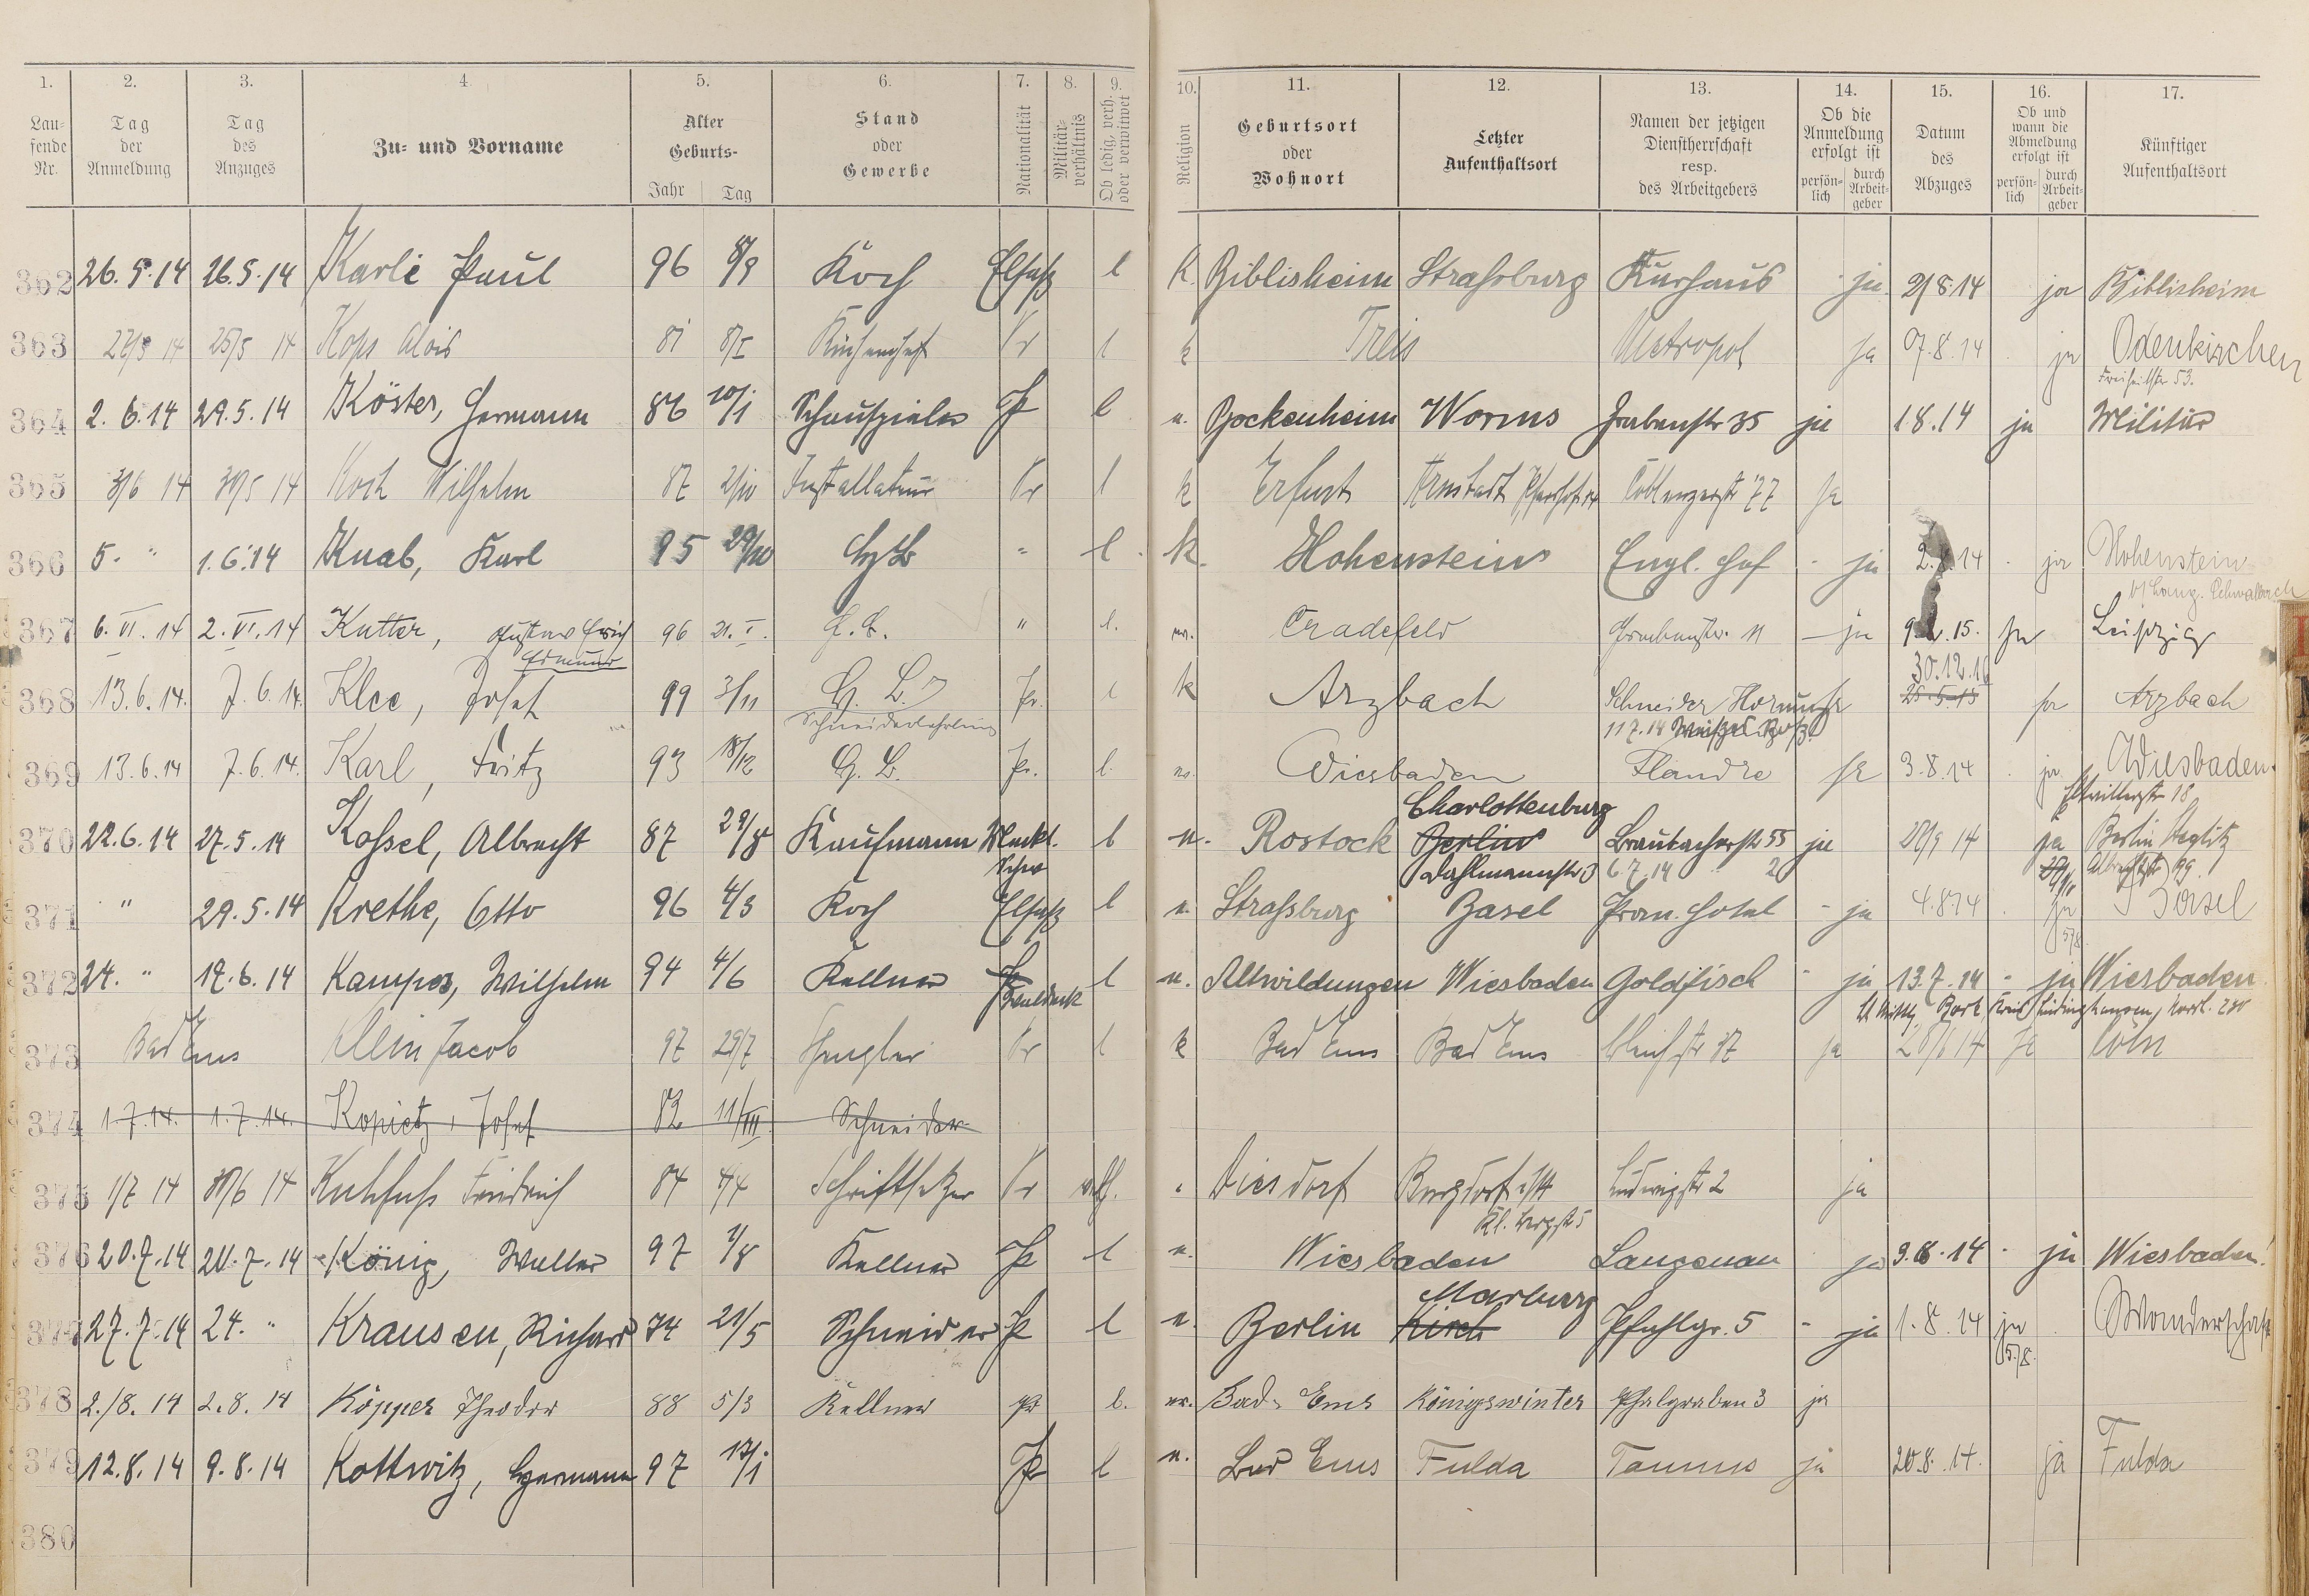 1. 2. 3. 4. 5. 6. 7. 8. 9. 10. 11. 12. 13. 14. 15. 16. 17.
Laufende Nr. Tag der Anmeldung Tag des Anzuges Zu- und Vorname Alter Geburts- Jahr Tag Stand oder Gewerbe Nationalität Militärverhältnis Ob ledig, verh. oder verwitwet Religion Geburtsort oder Wohnort Letzter Aufenthaltsort Namen der jetzigen Dienstherrschaft resp. des Arbeitgebers Ob die Anmeldung erfolgt ist persönlich durch Arbeitgeber Datum des Abzuges Ob und wann die Abmeldung erfolgt ist persönlich durch Arbeitgeber Künftiger Aufenthaltsort
362 26.5.14 26.5.14 Karli Paul 96 Koch Elsaß l K. Biblisheim Straßburg Kurhaus ja 2/8 14 ja Biblisheim
363 14 25/5 14 Kops Alois 81 8/I Küchenchef Pr l k Treis Metropol ja 7.8.14 ja Odenkirchen
Freiheitstr 53.
364 2.6.14 29.5.14 Köster, Hermann 86 10/1 Schauspieler Pr l Bockenheim Worms Grabenstr 35 ja 1.8.14 ja Militär
365 3/6 14 30/5 14 Koch Wilhelm 87 2/10 Installateur Pr l k Erfurt Arnstadt Coblenzerstr 77 ja
366 5. " 1.6.14 Knab, Karl 95 29/10 " l k. Hohenstein Engl. Hof - ja 2. 14 ja Hohenstein
b/ Lang. Schwalbach
367 6.VI.14 2.VI.14 Kutter, Gustav Erich 96 21.I. " l. Cradefeld Grabenstr. 11 - ja 15. ja Leipzig
Edmund
30.12.16
368 13.6.14. 7.6.14. Klee, Josef 99 3/11 Pr. l k Arzbach Schneider Hornung 25.5.15 ja Arzbach
Schneiderlehrling 11 7.14 Weißes Roß
369 13.6.14 7.6.14. Karl, Fritz 93 18/12 Pr. l. Wiesbaden Flandre ja 3.8.14 ja Wiesbaden.
Charlottenburg Eltvillerstr 18
370 22.6.14 27.5.14 Kossel, Albrecht 87 29/8 Kaufmann Meckl. l Rostock Berlin Braubacherstr 55 ja 14 ja Berlin Steglitz
Schw Dahlmannstr 3 6.7.14 2
371 " 29.5.14 Krethe, Otto 96 4/3 Koch Elsaß l Straßburg Basel Hotel - ja 4.8.14 ja Basel
5/8.
372 24. " 17.6.14 Kamper, Wilhelm 94 4/6 Kellner l Altwildungen Wiesbaden Goldfisch - ja 13.7.14 - ja Wiesbaden
Bork Kreis Lüdinghausen
373 Bad Ems Klein Jacob 97 29/7 Spengler Pr l k Bad Ems Bad Ems 37 ja 14 ja Cöln
374 1.7.14. 1.7.14. Kopietz, Josef 82 11/VIII Schneider
375 1/7 14 30/6 14 Kuhfuss Friedrich 84 4/4 Schriftsetzer Pr Diesdorf Burgdorf Ludwigstr 2 ja
376 20.7.14 20.7.14 König, Walter 97 1/8 Kellner Pr l Wiesbaden Langenau ja 9.8.14 - ja Wiesbaden
Marburg
377 27.7.14 24. " Krausen, Richard 74 21/5 Schneider Pr l Berlin Kirch Pfahlgr. 5 - ja 1.8.14 ja Wanderschaft
5/8.
378 2./8.14 2.8.14 Köpper Theodor 88 5/3 Kellner Pr l. Bad-Ems Königswinter Pfalgraben 3 ja
379 12.8.14 9.8.14 Kottwitz, Hermann 97 17/1 Pr l Bad Ems Fulda Taunus ja 20.8.14. ja Fulda
380